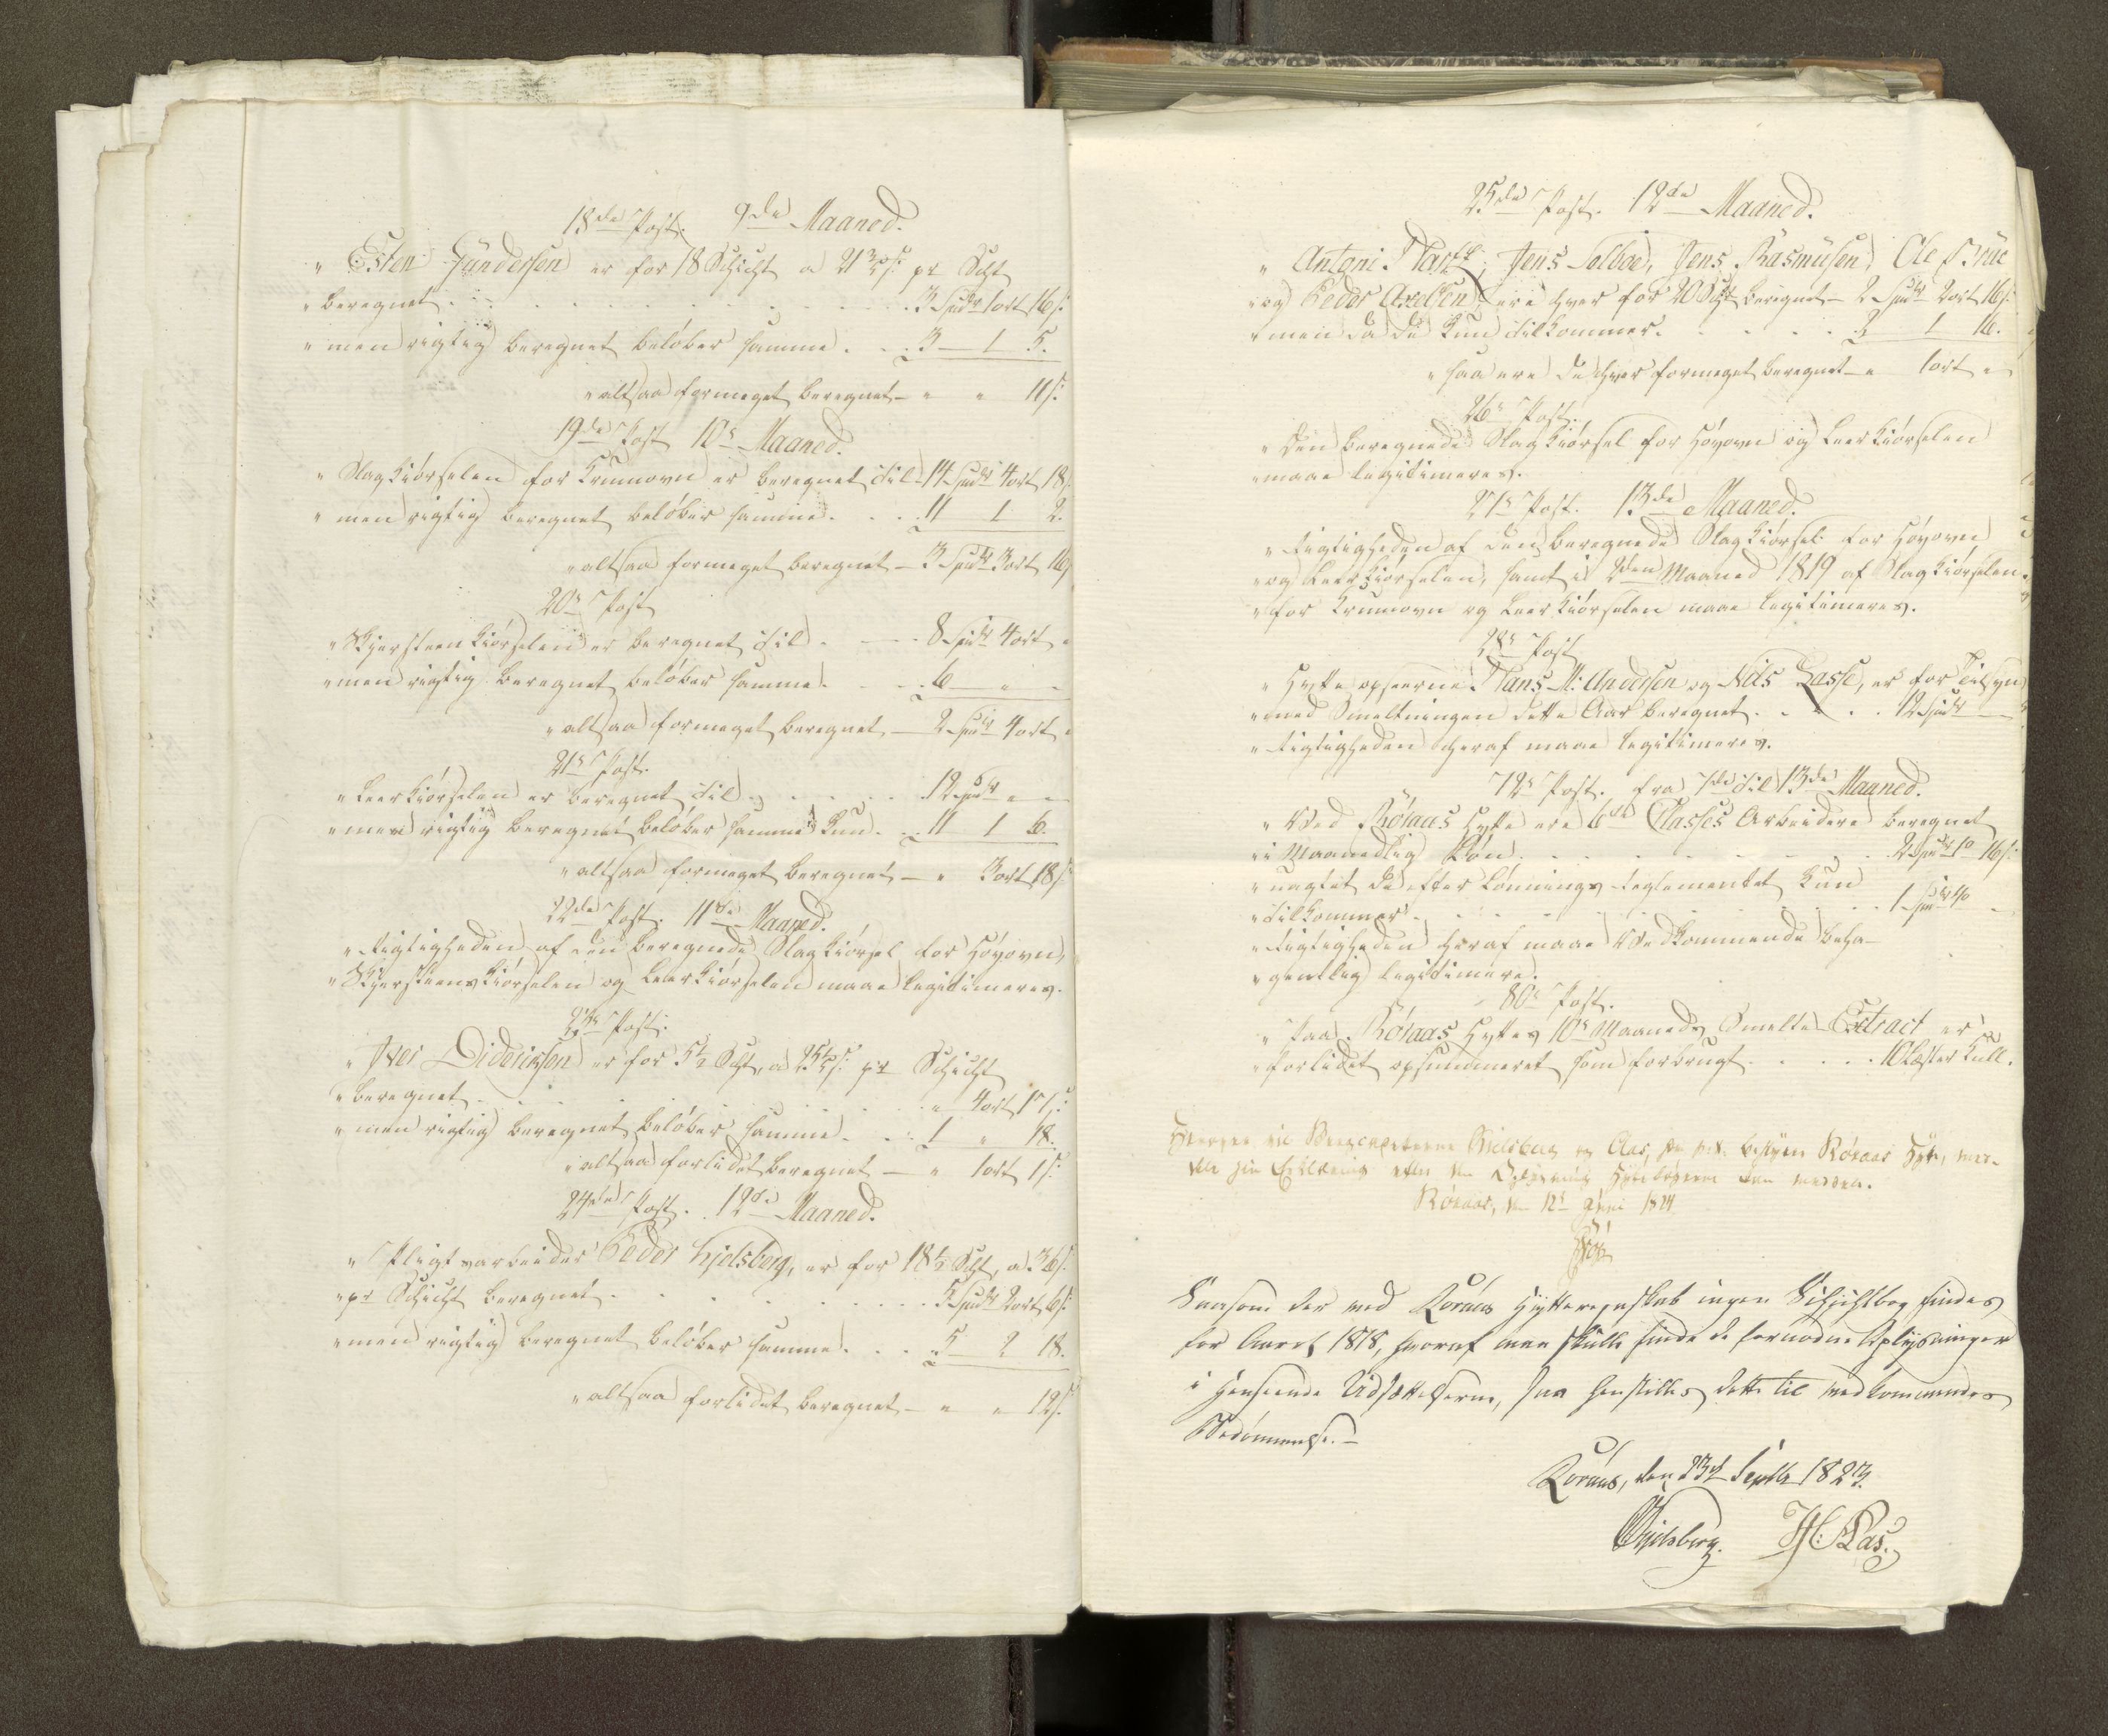 18de Post. 9de Maaned.
" Esten Gundersen er for 18 Schicht a 21 3/5 s. pr Scht
" beregnet . . . . . . 3 Spdr 1 ort 16 s.
" men rigtig beregnet beløber samme . . 3 1 5.
" altsaa formeget beregnet – " " 11 s.
19de Post 10de Maaned.
" Slagkiørselen for Krumovn er beregnet til 14 Spdr 4 ort 18 s.
" men rigtig beregnet beløber samme . . . 11 1 2.
" altsaa formeget beregnet – 3 Spdr 3 ort 16 s.
20de Post
" Skjersteenkiørselen er beregnet til . . . 8 Spdr 4 ort "
" men rigtig beregnet beløber samme . . . 6 " "
" altsaa formeget beregnet – 2 Spdr 4 ort "
21de Post.
" Leerkiørselen er beregnet til . . . . 12 Spdr " "
" men rigtig beregnet beløber samme kun . . 11 1 6.
" altsaa formeget beregnet – " 3 ort 18 s.
22de Post. 11te Maaned.
" Rigtigheden af den beregnede Slagkiørsel for Høyovn,
" Skjersteenskiørselen og Leerkiørselen maae legitimeres.
23de Post.
" Iver Dideriksen er for 5 1/2 Scht, a s. pr Schicht
" beregnet . . . . . . " 4 ort 17 s.
" men rigtig beregnet beløber samme . . 1 " 18.
" altsaa forlidet beregnet – " 1 ort 1 s.
24de Post. 12te Maaned.
" Pligtsarbeider Peder Hjelsberg, er for 18 1/2 Scht, a 36 s.
" pr Schicht beregnet . . . . . . 5 Spdr 2 ort 6 s.
" men rigtig beregnet beløber samme . . . 5 2 18.
" altsaa forlidet beregnet – " " 12 s.
25de Post. 12te Maaned.
" Antoni, Jens Solboe, Jens Rasmusen, Ole Bruc
" og Peder Axelsen, ere hver for 20 Scht beregnet – 2 Spdr 2 ort 16 s.
" men da de kun tilkommer . . . . . 2 1 16.
" saa ere de hver formeget beregnet – " 1 ort "
26de Post.
" Den beregnede Slagkiørsel for Høyovn og Leerkiørselen
" maae legitimeres.
27de Post. 13de Maaned.
" Rigtigheden af den beregnede Slagkiørsel for Høyovn
" og Leerkiørselen, samt i 2den Maaned 1819 af Slagkiørselen
" for Krumovn og Leerkiørselen maae legitimeres.
28de Post
" Hytteopseerne Hans M: Andersen og Nils Lasse, er for Tilsyn
" med Smeltningen dette Aar beregnet . . . . 12 Spdr
" Rigtigheden heraf maae legitimeres.
72de Post. fra 7de til 13de Maaned.
" Ved Røraas Hytte ere 6te Classes Arbeidere beregnet
" i Maanedlig Løn . . . . . . 2 Spdr 1 o 16 s.
" uagtet de efter Lønnings-Reglementet kun
" tilkommer . . . . . . 1 Spdr 4 o "
" Rigtigheden heraf maae Vedkommende beha-
" gentlig legitimere.
80de Post.
" Paa Røraas Hyttes 10de Maaneds Smelte-Extract er
" forlidet opsummeret som forbrugt . . . . . 10 Læster Kull.
Hjelsberg og Aas, Røraas Hytte, med-
dele sin Erklæring
Røraas, den 12te Juni 1821
Saasom der ved Røraas Hytteregnskab ingen Schichtbog findes
for Aaret 1818, hvoraf man skulle finde de fornødne Oplysninger
i Henseende Udsættelserne, saa henstilles dette til vedkommendes
Bedømmelse. –
Røraas, den 23de Septbr 1823.
Hjelsberg. H: Aas.